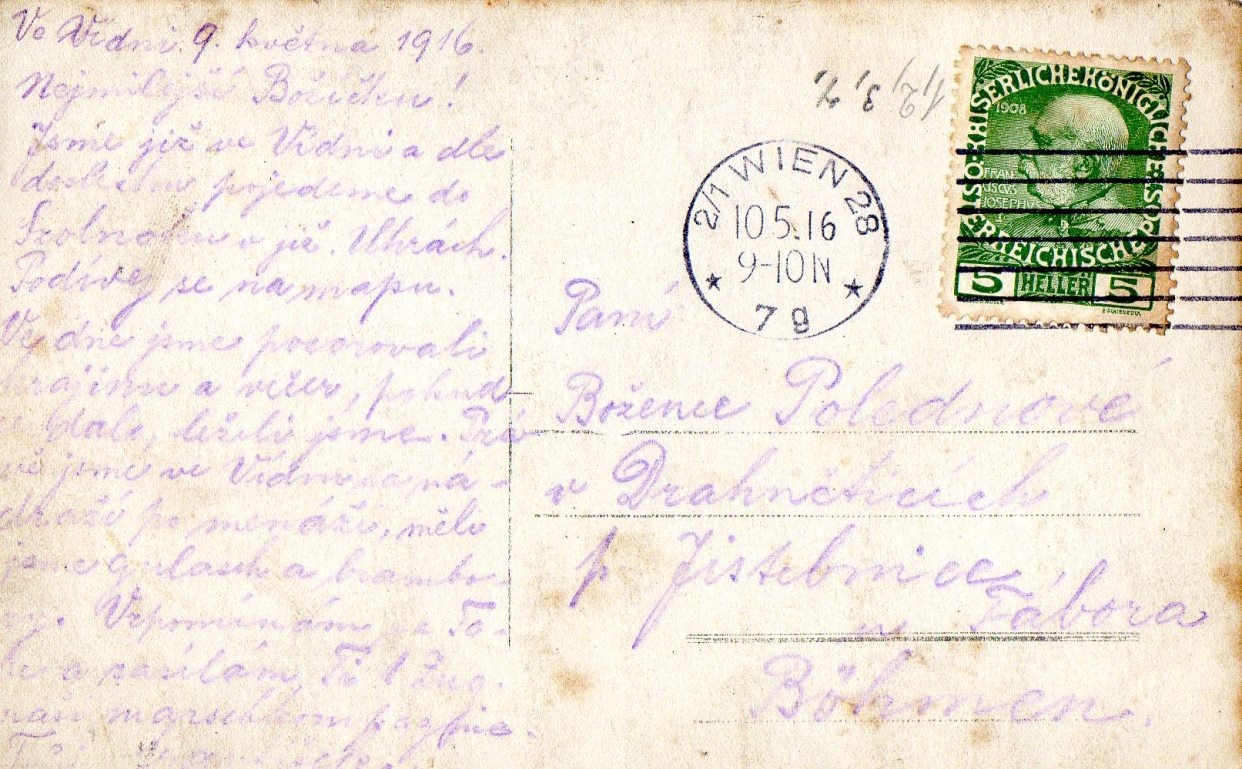 Ve Vídni 9. května 1916.
Nejmilejší Boženko!
Jsme již ve Vídni a dle
pojedeme do
Szolnoku v již. Uhrách.
Podívej se na mapu.
Ve dne jsme pozorovali
krajinu a večer, pokud
leželi jsme. Prá-
vě jsme ve Vídni na ná-
draží po menáži, měli
jsme gulasch a brambo-
ry. Vzpomínám
a zasílám Ti
marschkompagnie.
1908
KAISERLICHE KÖNIGLICHE ÖSTERREICHISCHE POST
FRANCISCUS JOSEPHUS I
5 HELLER 5
2/1 WIEN 28
10.5.16
9-10 IV
7g
Paní
Božence Polednové
v Drahněticích
p. Jistebnice
u Tábora
Böhmen.